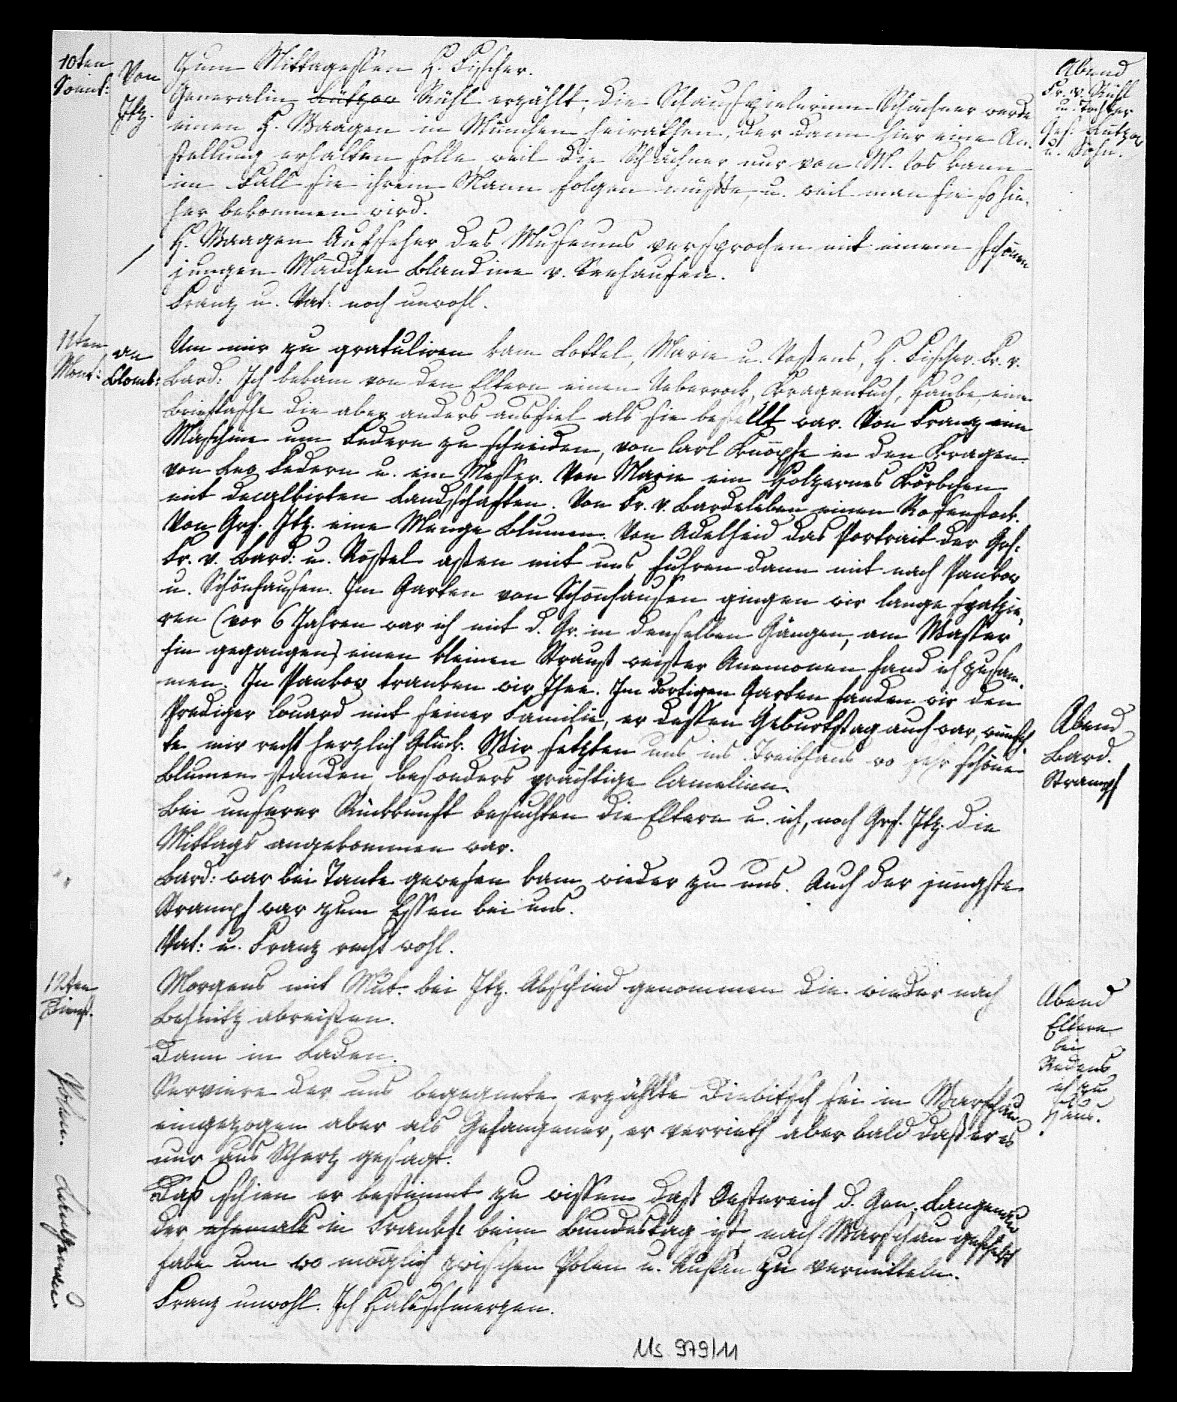 10ten
Sonnt:
Von
Itz.
Zum Mittagessen H. Fischer.
Generalin Lützow Rühl erzählt, die Schauspielerinn Schechner werde
einen H. Waagen in München heirathen, der dann hier eine An-
stellung erhalten solle, weil die Schechner nur von M. los kann
im Fall sie ihrem Mann folgen müßte, u. weil man sie so hie-
her bekommen wird.
H. Waagen Aufseher des Museums versprochen mit einem schönen
jungen Mädchen Blandine v. Seehausen.
Franz u. Vat: noch unwohl.
Abend
Fr. v. Rühl
u. Tochter
Gen: Lützow
u. Sohn.
11ten
Mont:
an
Blomb:
Um mir zu gratuliren kam Lottel, Marie u. H. Fischer. Fr. v.
Bard: Ich bekam von den Eltern einen Ueberrock, Kragentuch, Haube eine
Brieftasche die aber anders ausfiel als sie bestellt war. Von Franz eine
Maschine um Federn zu schneiden, von Carl Knöpfe in den Kragen.
von Leo Federn u. ein Messer. Von Marie ein Hölzernes Körbchen
mit decalkirten Landschaften. Von Fr. v. Bardeleben einen Rosenstock.
Von Grf. Itz. eine Menge Blumen. Von Adelheid das Portrait der Grf:
Fr. v. Bard: u. Röstel aßen mit uns, fuhren dann mit nach Pankow
u. Schönhausen. Im Garten von Schönhausen gingen wir lange spatzie-
ren (vor 6 Jahren war ich mit d. Gr. in denselben Gängen, am Wasser
hin gegangen) einen kleinen Strauß weißer Anemonen fand ich zusam-
men. In Pankow tranken wir Thee. Im dortigen Garten fanden wir den
Prediger Couard mit seiner Familie, er dessen Geburtstag auch war, wünsch-
te mir recht herzlich Glück. Wir setzten uns ins Treibhaus wo sehr schöne
Blumen standen, besonders prächtige Camelien.
Bei unserer Rückkunft besuchten die Eltern u. ich, noch Grf. Itz. die
Mittags angekommen war.
Bard: war bei Tante gewesen kam wieder zu uns. Auch der jüngste
Strampf war zum Essen bei uns.
Vat: u. Franz recht wohl.
Abend
Bard.
Strampf
12ten
Dienst.
Morgens mit Mut: bei Itz. Abschied genommen die wieder nach
abreißten.
Dann in Laden.
Serviere der uns begegnete, erzählte Diebitsch sei in Warschau
eingezogen aber als Gefangener, er verrieth aber bald daß er es
nur aus Schertz gesagt.
Das schien er bestimmt zu wissen daß Oestereich d. Gen. Langenau
der ehemals in Frankf: beim Bundestag ist, nach Warschau geschickt
habe um wo möglich zwischen Polen u. Russen zu vermitteln.
Franz unwohl. Ich Halsschmerzen.
Abend
Eltern
bei
Redens
ich zu
Haus.
Ms 979/11